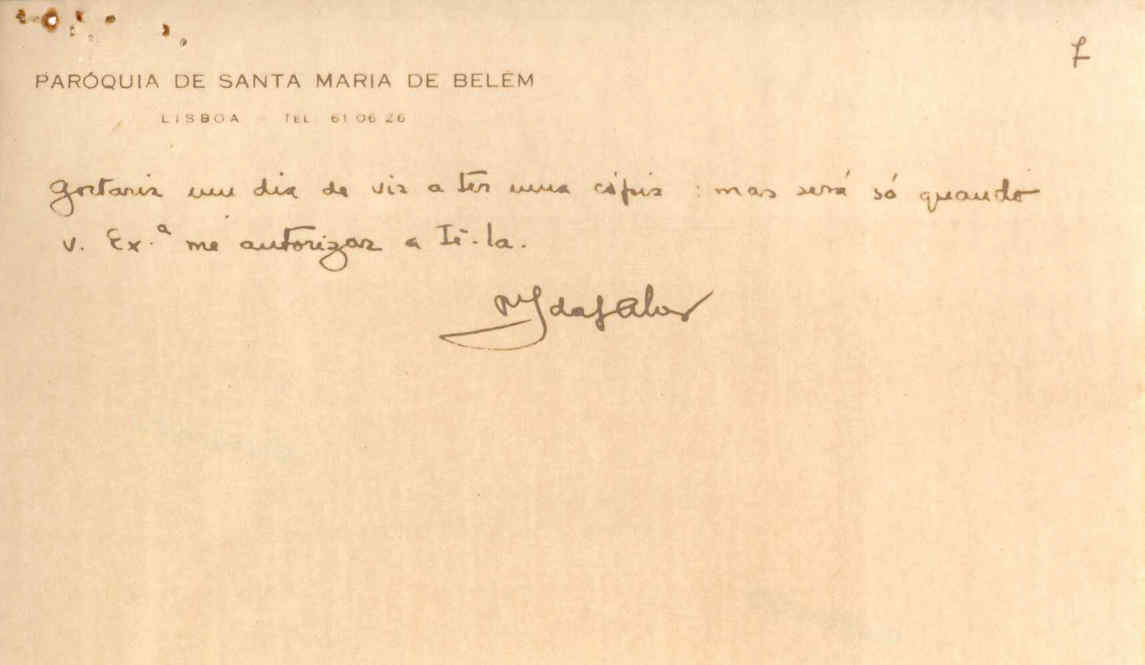 7
PARÓQUIA DE SANTA MARIA DE BELÉM
LISBOA - TEL. 61 06 26
Gostaria um dia de vir a ter uma cópia : mas será só quando
V. Ex.ª me autorizar a tê-la.